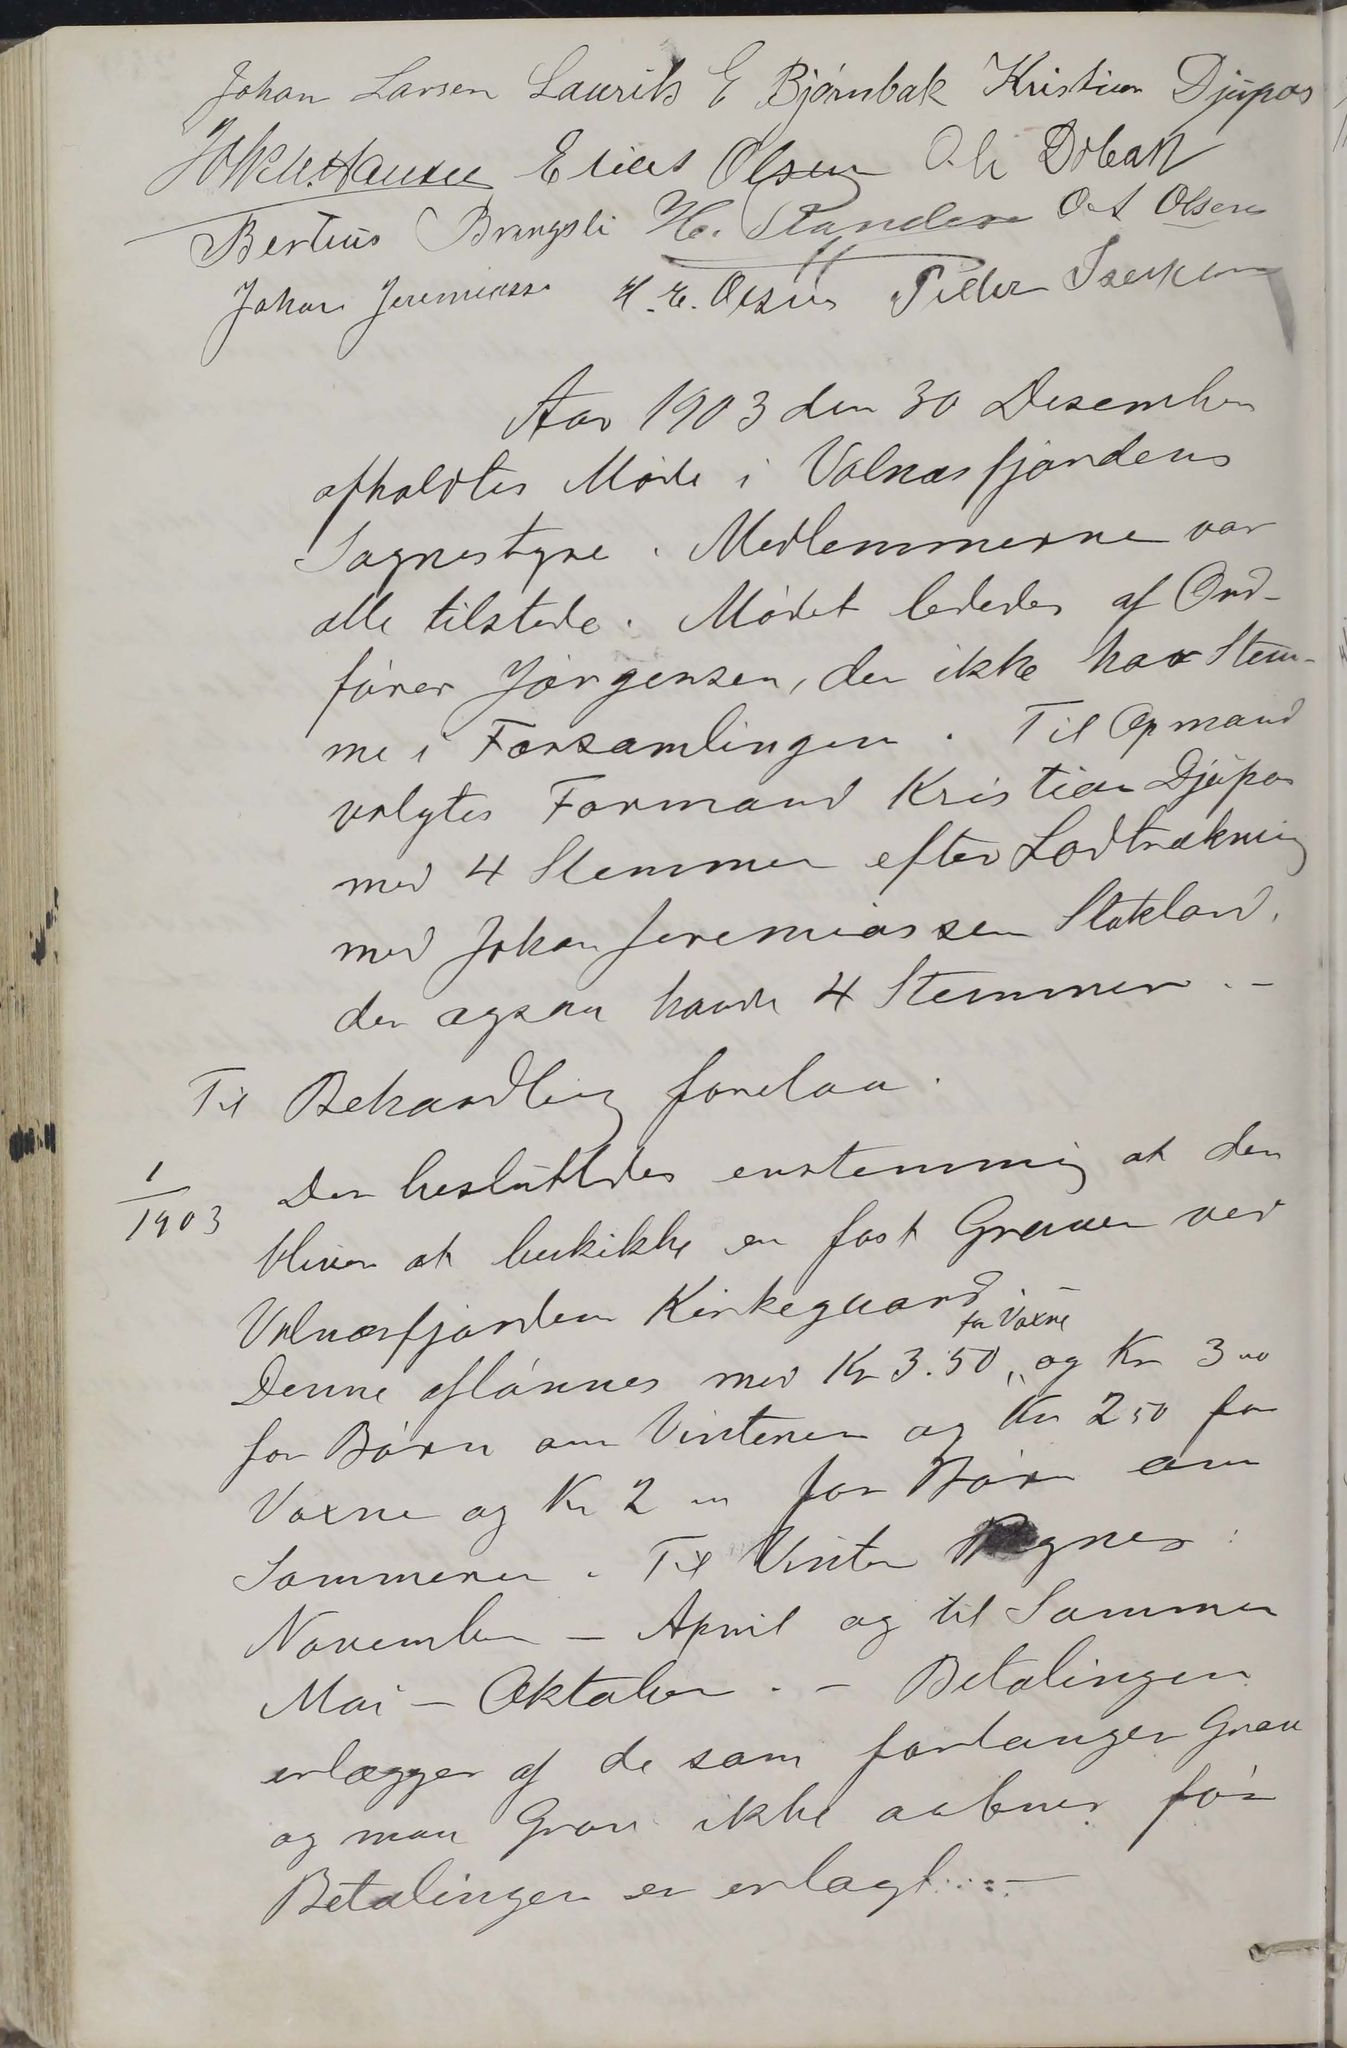 Johan Larsen Laurits E Bjørnbak Kristian Djupos
Hansen Elias Olsen Ole Dobak
Bertius Bringsli H. Strandere O A Olsen
Johan Jeremiass H. E. Olsen Peder Isaksen
Aar 1903 den 30 Desember
afholdtes Møde i Valnesfjordens
Sognestyre. Medlemmerne var
alle tilstede. Mødet lededes af Ord-
fører Jørgensen, der ikke har Stem-
me i Forsamlingen. Til Opmand
valgtes Formand Kristian Djupos
med 4 Stemmer efter Lodtrækning
med Johan Jeremiassen Stokland,
der ogsaa havde 4 Stemmer. -
Til Behandling forelaa.
1/1903 Der besluttedes enstemmig at der
bliver at beskikke en fast Graver ved
Valnæsfjorden Kirkegaard.
for Voxne
Denne aflønnes med Kr 3.50 „ og Kr 3 00
for Børn om Vinteren og Kr 2 50 for
Voxne og Kr 2 00 for Børn om
Sommeren. Til Vinter Regnes:
November - April og til Sommer
Mai - Oktober. - Betalingen
erlægger af de som forlanger Grav
og maa Grav ikke aabnes før
Betalingen er erlagt. -